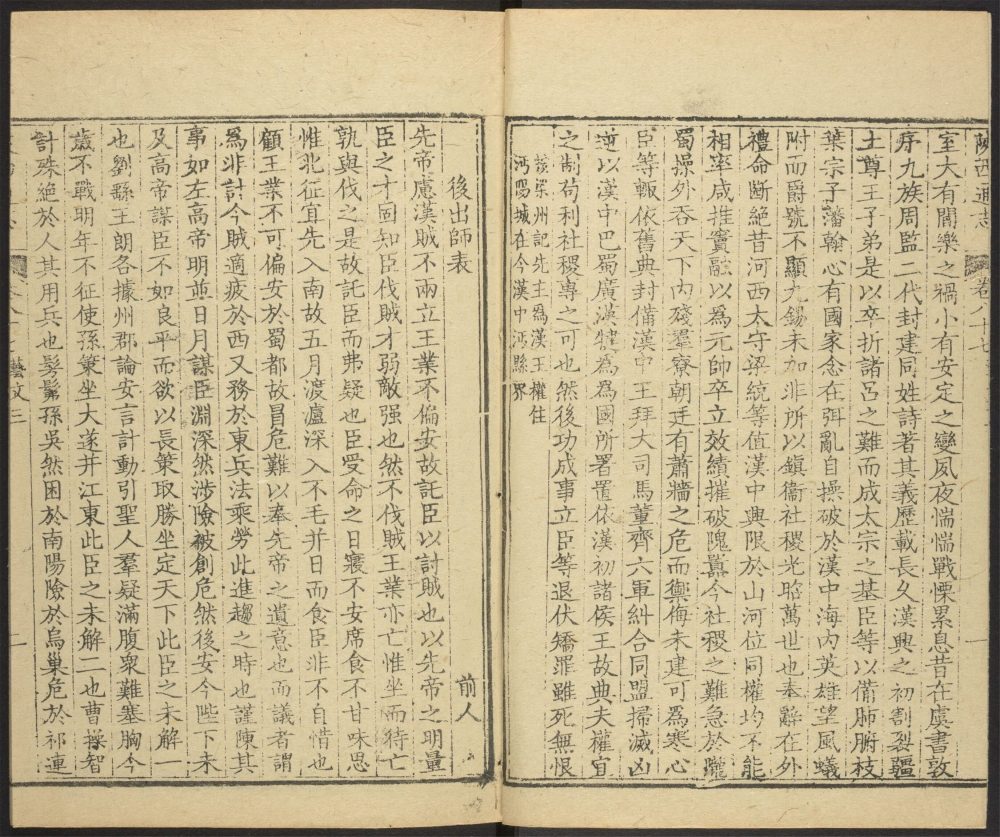 陝西通志 卷八十七
室大有閻樂之禍小有安定之變夙夜惴惴戰慄累息昔在虞書敦
序九族周監二代封建同姓詩著其義歷載長久漢興之初割裂疆
土尊王子弟是以卒折諸呂之難而成太宗之基臣等以備肺腑枝
葉宗子藩翰心有國家念在弭亂自操破於漢中海內英雄望風蟻
附而爵號不顯九錫未加非所以鎮衞社稷光昭萬世也奉辭在外
禮命斷絕昔河西太守梁統等值漢中興限於山河位同權均不能
相率咸推竇融以為元帥卒立效績摧破隗囂今社稷之難急於隴
蜀操外吞天下內殘羣寮朝廷有蕭牆之危而禦侮未建可為寒心
臣等輒依舊典封備漢中王拜大司馬董齊六軍糾合同盟掃滅凶
逆以漢中巴蜀廣漢犍為為國所署置依漢初諸侯王故典夫權宜
之制苟利社稷專之可也然後功成事立臣等退伏矯罪雖死無恨
梁州記先主為漢王權住
沔陽城在今漢中沔縣界
後出師表 前人
先帝慮漢賊不兩立王業不偏安故託臣以討賊也以先帝之明量
臣之才固知臣伐賊才弱敵强也然不伐賊王業亦亡惟坐而待亡
孰與伐之是故託臣而弗疑也臣受命之日寢不安席食不甘味思
惟北征宜先入南故五月渡瀘深入不毛并日而食臣非不自惜也
顧王業不可偏安於蜀都故冒危難以奉先帝之遺意也而議者謂
爲非計今賊適疲於西又務於東兵法乘勞此進趨之時也謹陳其
事如左高帝明並日月謀臣淵深然涉險被創危然後安今陛下未
及高帝謀臣不如良平而欲以長策取勝坐定天下此臣之未解一
也劉繇王朗各據州郡論安言計動引聖人羣疑滿腹衆難塞胸今
歲不戰明年不征使孫策坐大遂并江東此臣之未解二也曹操智
計殊絕於人其用兵也髣髴孫吳然困於南陽險於烏巢危於祁連
藝文三 一